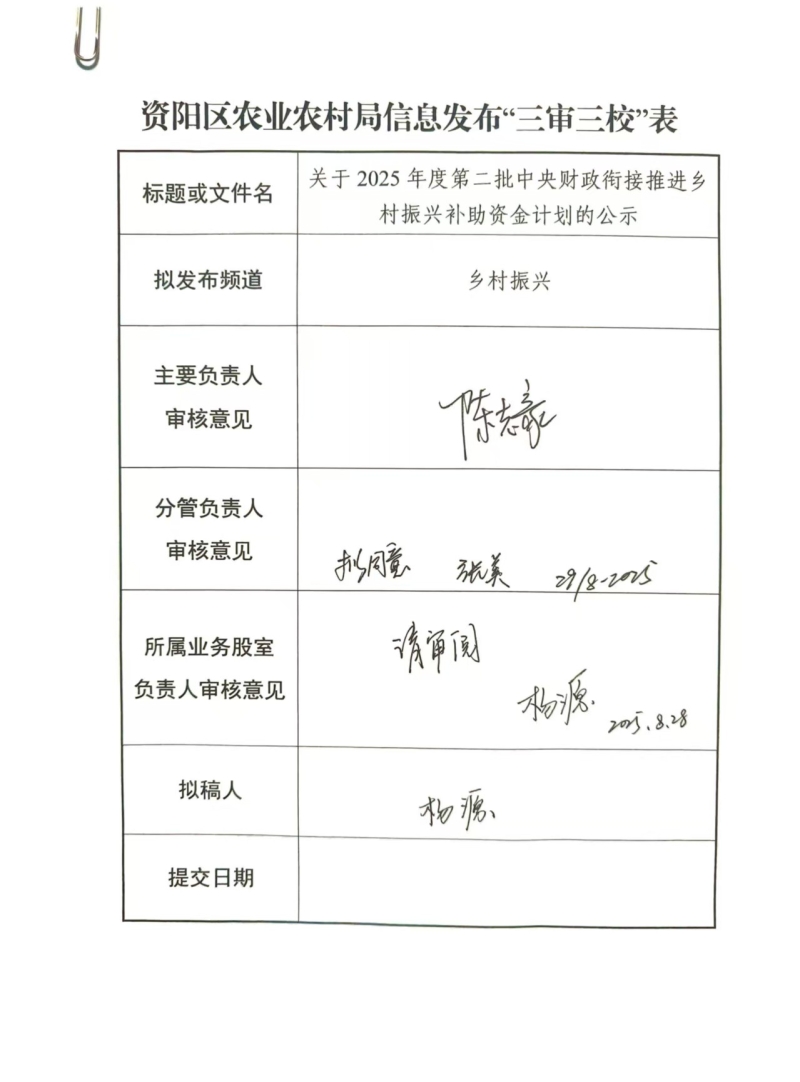 资阳区农业农村局信息发布“三审三校”表
标题或文件名
关于 2025 年度第二批中央财政衔接推进乡
村振兴补助资金计划的公示
拟发布频道
乡村振兴
主要负责人
审核意见
陈志豪
分管负责人
审核意见
拟同意 张英 29/8-2025
所属业务股室
负责人审核意见
请审阅
杨源
2025.8.28
拟稿人
杨源
提交日期